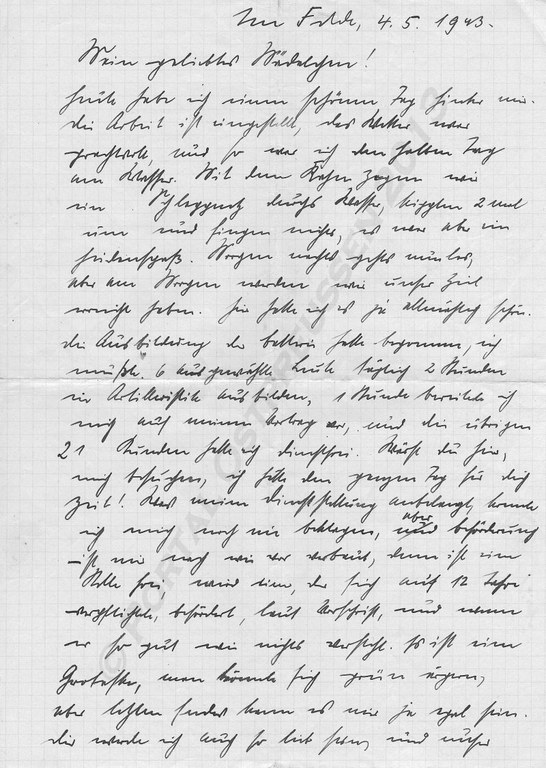 Im Felde, 4. 5. 1943.
Mein geliebtes Mädelchen!
Heute habe ich einen schönen Tag hinter mir.
die Arbeit ist eingestellt, das Wetter war
prachtvoll, und so war ich den halben Tag
am Wasser. Mit dem Kahn zogen wir
ein Schleppnetz durchs Wasser, kippten 2 mal
um und fingen nichts, es war aber ein
Heidenspaß. Morgen nachts gehts
aber am Morgen werden wir unser Ziel
erreicht haben. Hier hatte ich es ja allmählich schön.
die Ausbildung der Batterie hatte begonnen, ich
mußte 6 ausgewählte Leute täglich 2 Stunden
in Artilleristik ausbilden, 1 Stunde bereitete ich
mich auf meinen Vortrag vor, und die übrigen
21 Stunden hatte ich dienstfrei. Wärst du hier,
mich besuchen, ich hätte den ganzen Tag für dich
Zeit! Was meine Dienststellung anbelangt, konnte
ich mich noch nie beklagen, aber Beförderung
ist mir nach wie vor verbaut, denn ist eine
Stelle frei wird einer, der sich auf 12 Jahre
verpflichtete, befördert, laut Vorschrift, und wenn
er so gut wie nichts versteht. Es ist eine
Groteske, man könnte sich grün ärgern,
aber letzten Endes kann es mir ja egal sein.
dir werde ich auch so lieb sein, und unser
© PORTAL OSTPREUSSEN